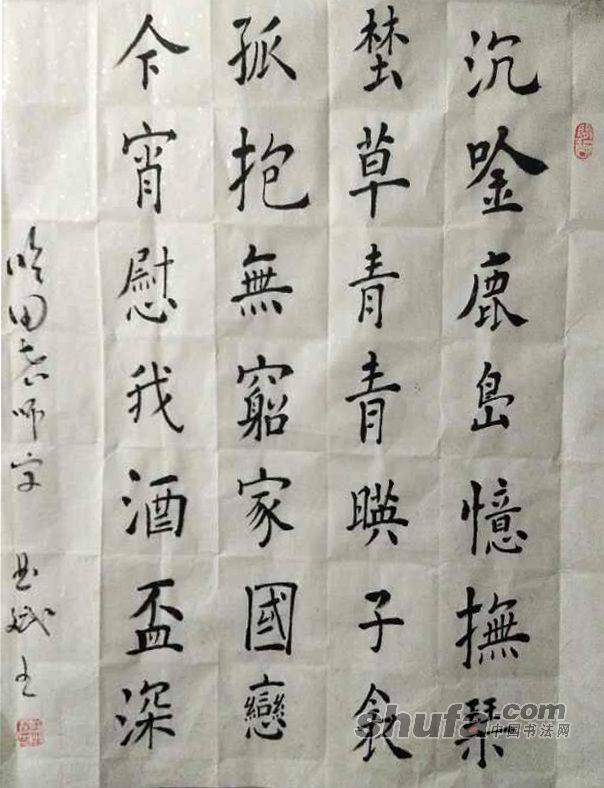 沉唫鹿島憶撫琹
埜草青青暎子衾
孤抱無窮家國戀
今宵慰我酒盃深
田老师字
shufa.com
中国书法网